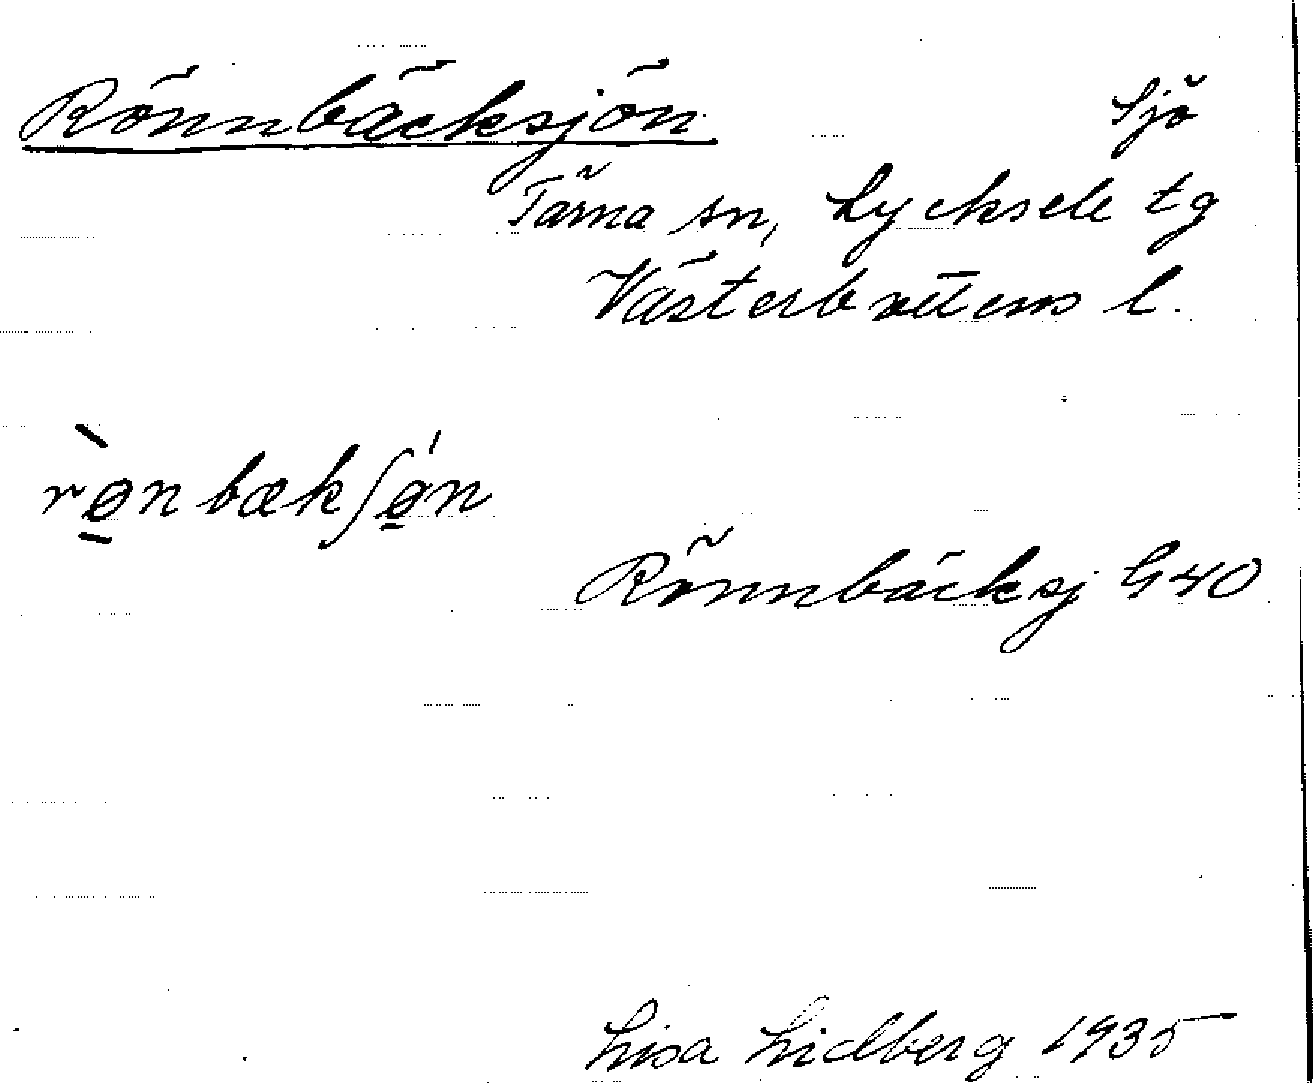 Rönnbäcksjön Sjö
Tärna sn, Lycksele tg
Västerbottens l.
rø̀nbækʃǿn
Rönnbäcksj G40
Lisa Lidberg 1935